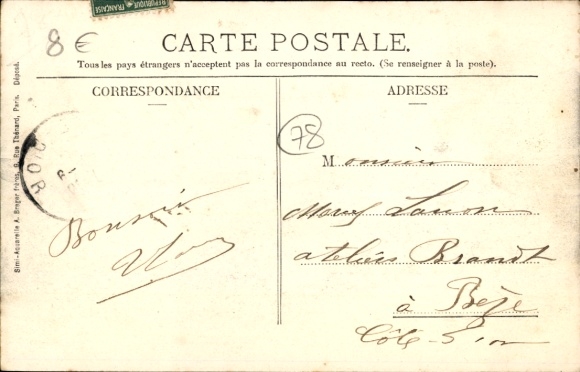 RÉPUBLIQUE FRANÇAISE
8 €
CARTE POSTALE.
Tous les pays étrangers n'acceptent pas la correspondance au recto. (Se renseigner à la poste).
CORRESPONDANCE
ADRESSE
78
Monsieur
Lanon
ateliers Brandt
à Bèze
Côte-d'or
D'OR
Simi-Aquarelle A. Breger frères, 9, Rue Thénard, Paris. Déposé.